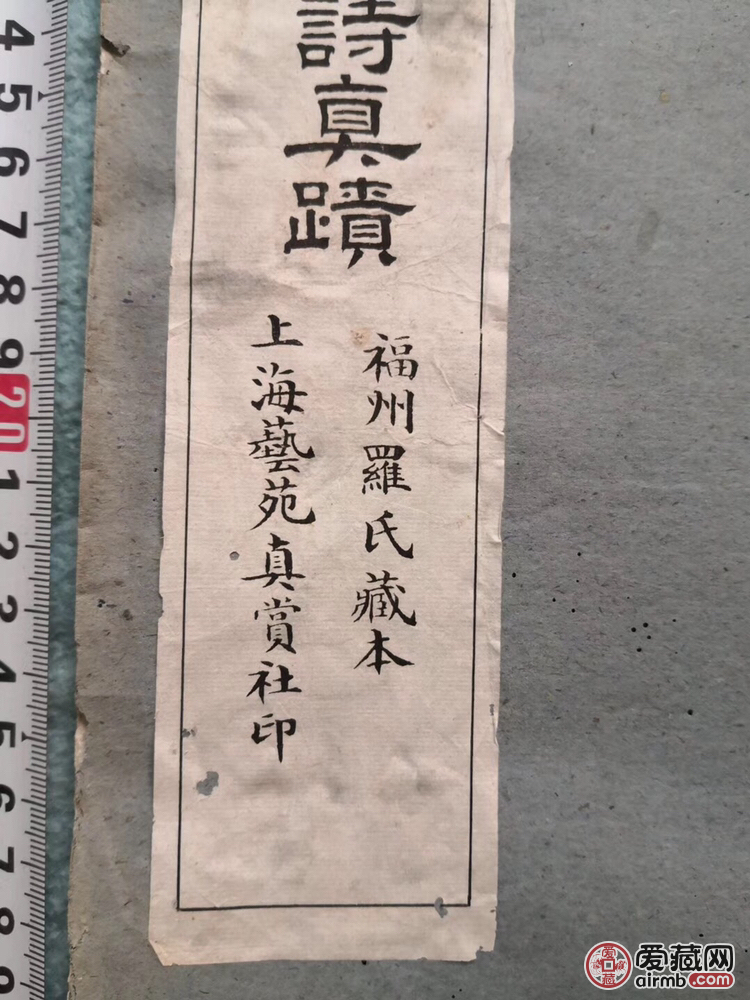 詩真蹟
福州羅氏藏本
上海藝苑真賞社印
4
5
6
7
8
9
20
1
2
3
4
5
6
7
8
9
爱藏网
airmb.com